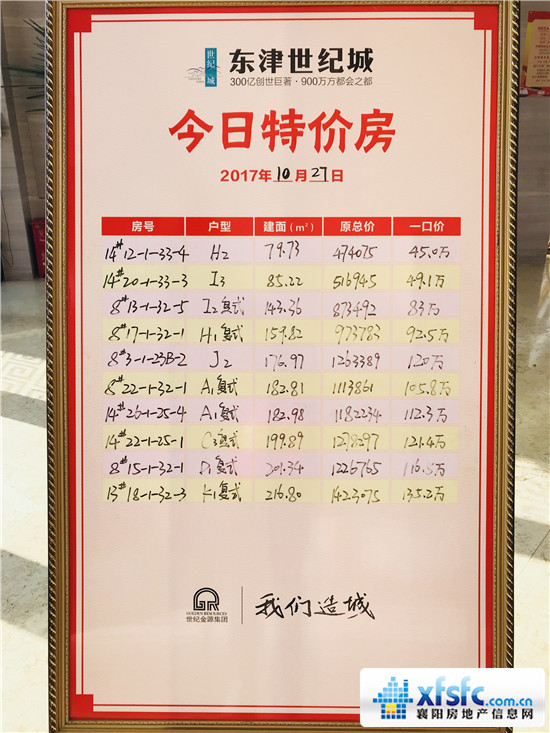 世纪城
东津世纪城
300亿创世巨著·900万方都会之都
今日特价房
2017年10月27日
房号 户型 建面（m²） 原总价 一口价
14#12-1-33-4 H2 79.73 474075 45.0万
14#20-1-33-3 I3 85.22 516945 49.1万
8#13-1-32-5 I2复式 143.36 873492 83万
8#17-1-32-1 H1复式 159.82 973783 92.5万
8#3-1-23B-2 J2 176.97 1263389 120万
8#22-1-32-1 A1复式 182.81 1113861 105.8万
14#26-1-25-4 A1复式 182.98 1182234 112.3万
14#22-1-25-1 C3复式 199.89 1278297 121.4万
8#15-1-32-1 D1复式 201.34 1226765 116.5万
13#18-1-32-3 K1复式 216.80 1423075 135.2万
GOLDEN RESOURCES
世纪金源集团
我们造城
xfsfc.com.cn
襄阳房地产信息网